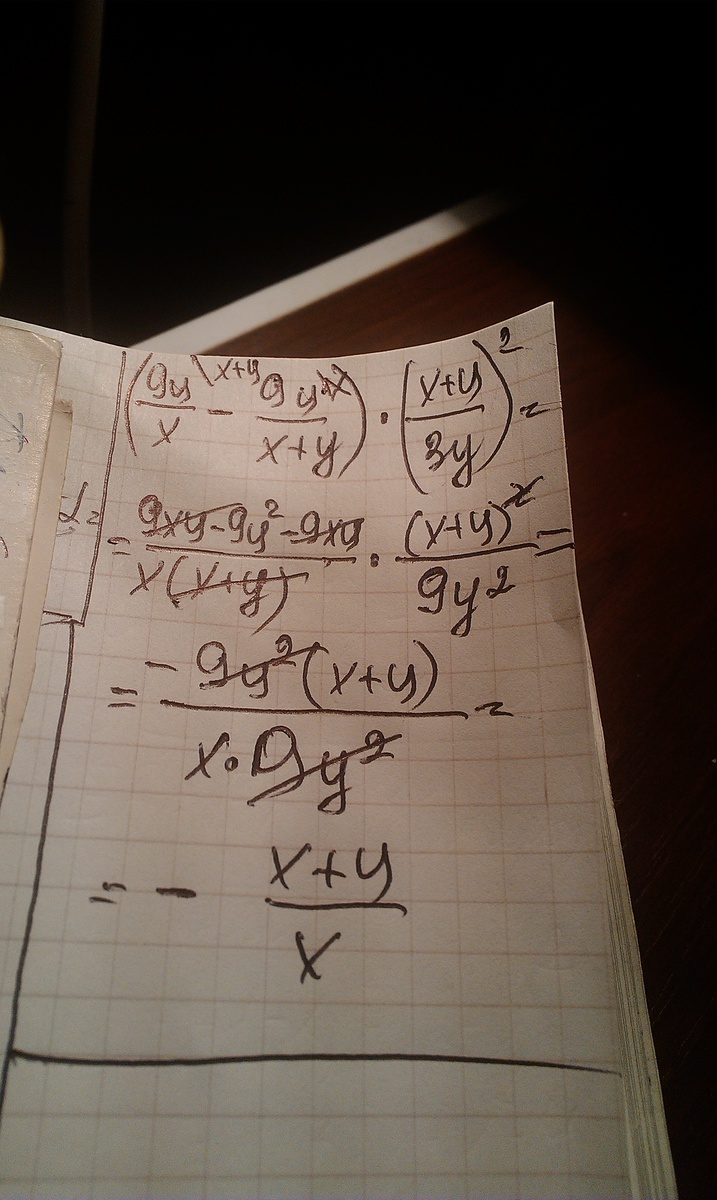 (9y/x \x+y - 9y\x/x+y) · (x+y/3y)² =
= 9xy-9y²-9xy/x(x+y) · (x+y)²/9y² =
= -9y²(x+y)/x·9y² =
= - x+y/x